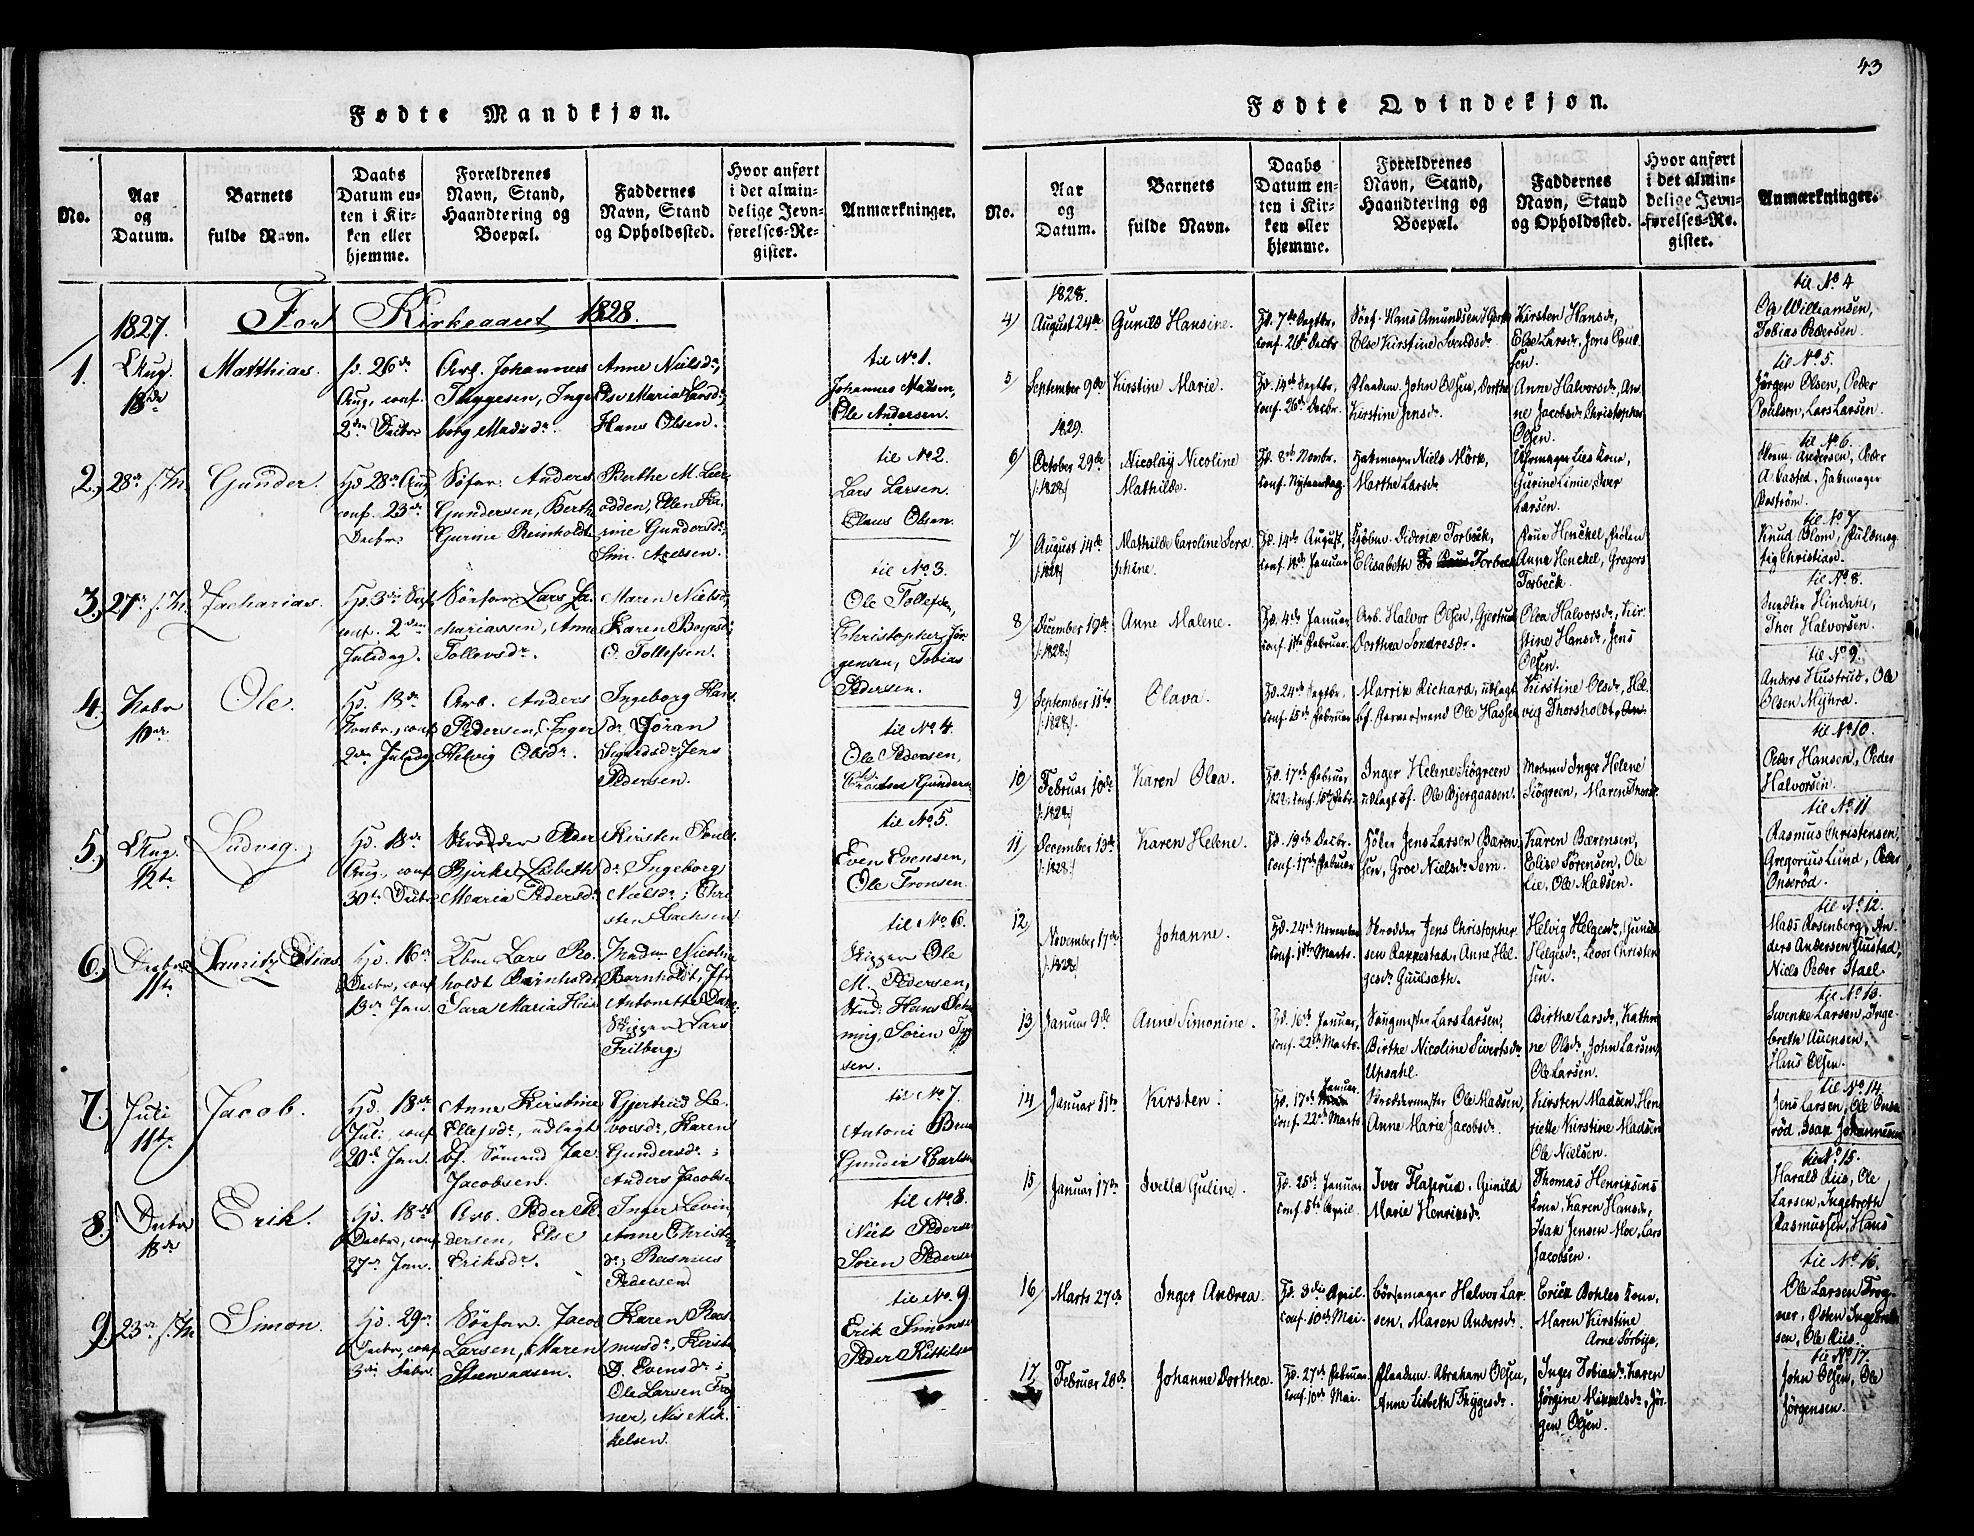 43
Fødte Mandkjøn.
No.
Aar
og
Datum.
Barnets
fulde Navn.
Daabs
Datum en-
ten i Kir-
ken eller
hjemme.
Forældrenes
Navn, Stand,
Haandtering og
Boepæl.
Faddernes
Navn, Stand
og Opholdssted.
Hvor anført
i det almin-
delige Jevn-
førelses-Re-
gister.
Anmærkninger.
1827.
For Kirkeaaret 1828.
1.
Aug.
18de
Matthias.
hd. 26de
Aug., conf.
2den Decbr
Arb. Johannes
Thygesen, Inge
borg Madsdr.
Anne Nielsdr,
Else Maria Larsdr,
Hans Olsen.
til No 1.
Johannes Madsen,
Ole Andersen.
2.
28de s. M.
Gunder.
hd 28de Aug
conf. 23de
Decbr
Søfar. Anders
Gundersen, Berthe
Gurine Reinholdt
Berthe M. Lar
odden, Ellen Ka
rine Gundersdr,
Sim. Axelsen.
til No 2.
Lars Larsen.
Claus Olsen.
3.
27de s. M.
Zacharias.
conf. 2den
Juledag.
Søfar Lars Za
chariassen, Anne
Tollevsdr.
Maren Nielsdr,
Karen Boyesdr,
O. Tollefsen.
til No 3.
Ole Tollefsen,
Christopher Jør
gensen, Tobias
Pedersen.
4.
Novbr
10de
Ole.
hd. 18de
Novbr., conf
2den Juledag
Arb. Anders
Pedersen, Inger
Helvig Olsdr.
Ingeborg Hans
dr, Jøran
Sigurdsdr, Jens
Pedersen.
til No 4
Ole Pedersen,
5.
Aug.
12te
Ludvig.
hd. 18de
Aug., conf
30te Decbr
Skrædder Peder
Bjerke, Lisbeth
Maria Pedersdr.
Kirsten Pouls
dr, Ingeborg
Nielsdr, Chri
sten Isachsen
til No 5.
Even Evensen,
Ole Tronsen.
6.
Decbr
11te
Lauritz Elias.
hd. 16de
Decbr, conf
13de Jan
Kbm Lars Ro
holdt Barnholdt,
Sara Maria Heis
Madm Nicolina
Barnholdt, Jfr
Antonette Dahl,
Skipper Lars
Feilberg.
til No 6.
Skipper Ole
M. Pedersen,
7.
Juli
11te
Jacob.
hd. 18de
Juli, conf
20de Jan.
Anne Kirstine
Ellefsdr, udlagt
bf. Sømand Jac
Jacobsen.
Gjertrud Le
vorsdr, Karen
Gundersdr;
Anders Jacobsen
til No 7.
Antoni
Gunder Carlsen
8.
Decbr
18de
Erik.
hd. 18de
Decbr, conf
27de Jan.
Arb. Peder Pe
dersen, Else
Eriksdr.
Inger Levin
Anne Christens
dr, Rasmus
Pedersen
til No 8.
Niels Pedersen
Søren Pedersen
9.
23de s. M
Simon.
hd. 29de
Decbr, conf
3die Febr.
Søfar. Jacob
Larsen, Maren
Steensaasen.
Karen Ras
musdr, Kirsten
D. Evensdr;
Ole Larsen Frog
ner, Nis Mik
kelsen.
til No 9.
Erik Simonsen
Peder Kittilsen
Fødte Qvindekjøn.
No.
Aar
og
Datum.
Barnets
fulde Navn.
Daabs
Datum en-
ten i Kir-
ken eller
hjemme.
Forældrenes
Navn, Stand,
Haandtering og
Boepæl.
Faddernes
Navn, Stand
og Opholdssted.
Hvor anført
i det almin-
delige Jevn-
førelses-Re-
gister.
Anmærkninger.
1828.
4)
August 24de
Gunild Hansine.
Hd. 7de Septbr,
conf. 26de Decbr
Søef. Hans Amundsen
Else Kirstine Svendsdr
Kirsten Hansdr,
Else Larsdr, Jens Poul
sen.
til No 4
Ole Williamsen,
Tobias Pedersen.
5)
September 9de
Kirstine Marie.
Hd. 14de Septbr,
conf. 26de Decbr.
John Olsen, Dorthe
Kirstine Jensdr.
Anne Halvorsdr, An
ne Jacobsdr, Christopher
Olsen.
til No 5.
Jørgen Olsen, Peder
Poulsen, Lars Larsen.
1829.
6)
October 29de
/:1828:/
Nicolay Nicoline
Mathilde.
Hd. 8de Novbr.
conf. Nytaarsdag.
Niels Mørk,
Marthe Larsdr.
Gurine Linie, Iver
Larsen.
til No 6.
7)
August 14de
/:1828:/
Mathilde Caroline Sera
phine.
Hd. 14de August,
conf. 18de Januar
Kjøbm. Diderik Forbech,
Elisabeth
Anne Henckel, Gregers
til No 7
Knud Blom, Fuldmæg
tig Christian.
8)
December 19de
/:1828:/
Anne Malene.
Hd. 4de Januar
conf. 1ste Februar.
Arb. Halvor Olsen, Gjertrud
Dorthea Sondresdr.
Olea Halvorsdr, Kir
stine Hansdr, Jens
Olsen.
til No 8.
Hindahl,
Thor Halvorsen.
9)
September 11te
/:1828:/
Olava.
Hd. 24de Septbr.
conf. 15de Februar
Marrix Richard, udlagt
bf. Ole Hassel
Kirstine Olsdr, Hel
vig Thorsholdt,
til No 9.
Ole
Olsen Myhra.
10)
Februar 10de
/:1828:/
Karen Olea.
Hd. 17de Februar
1828, conf. 15de Febr.
Inger Helene Siøgreen
udlagt bf. Ole Bjergaasen.
Moderen Inger Helene
Siøgreen, Maren Thorsdr
til No 10.
Peder Hansen, Peder
Halvorsen.
11)
December 13de
/:1828:/
Karen Helene.
Hd. 19de Decbr.
conf. 17de Februar
Jens Larsen Bæren
sen, Groe Nielsdr Sem.
Karen Bærensen,
Elise Sørensen, Ole
Lie, Ole Madsen.
til No 11
Rasmus Christensen
Gregorius Lund, Peder
Onsrød.
12)
November 17de
/:1828:/
Johanne.
Hd. 24de November
conf. 1ste Marts.
Skrædder Jens Christopher
sen Rappestad, Anne Hel
gesdr Guulsæth.
Helvig Helgesdr, Gunild
Helgesdr, Levor Christen
sen.
til No 12.
Mads Rosenberg, An
ders Andersen Hustad,
Niels Peder Stael
13)
Januar 9de
Anne Simonine.
Hd. 16de Januar,
conf. 22de Marts.
Saugmester Lars Larsen,
Birthe Nicoline Sivertsdr
Upsahl.
Birthe Larsdr, Kathri
ne Olsdr, John Larsen,
Ole Larsen.
til No 13.
Svenke Larsen, Inge
breth Auensen,
Hans Olsen.
14)
Januar 11te
Kirsten.
Hd. 17de Januar
conf. 22de Marts
Ole Madsen,
Anne Marie Jacobsdr.
Kirsten Madsen, Hen
riette Kirstine Madsen
Ole Nielsen.
til No 14.
Jens Larsen, Ole Ons
rød, Isak Johannesen
15)
Januar 17de
Ivella Guline.
Hd. 25de Januar
conf. 5te April.
Iver Flaserud, Gunild
Marie Henriksdr.
Thomas Henriksens
Kone, Karen Hansdr,
Isak Jensen Moe, Lars
Jacobsen.
til No 15.
Harald Riis, Ole
Larsen, Ingebreth
Rasmussen, Hans
16)
Marts 27de
Inger Andrea.
Hd. 3die April.
conf. 10de Mai.
Børsemager Halvor Lar
sen, Maren Andersdr.
Erich Bohles Kone,
Maren Kirstine
Arne Sørbye,
til No 16.
Ole Larsen Frog
ner, Østen Ingebreth
sen, Ole Riis.
17)
Februar 20de
Johanne Dorthea.
Hd. 27de Februar
conf. 10de Mai.
Abraham Olsen,
Anne Lisbeth Thygesdr.
Inger Tobiasdr, Karen
Jørgine Mikkelsdr, Jør
gen Olsen.
til No 17.
John Olsen, Ole
Jørgensen.